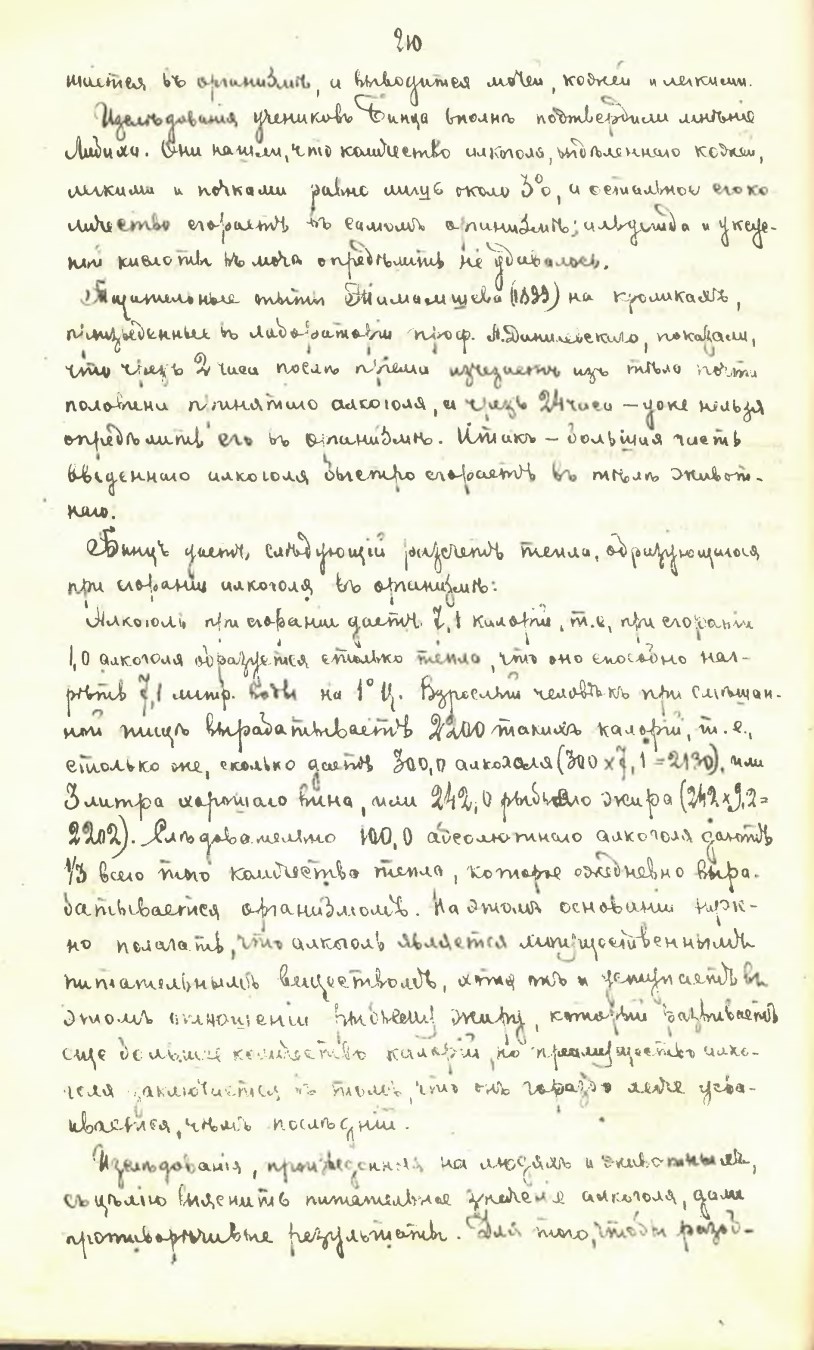 210
шается въ организмѣ, а выводится мочей, кожей и легкими.
Изслѣдованія учениковъ Бинца вполнѣ подтвердили мнѣніе
Либиха. Они нашли, что количество алкоголя, выдѣленнаго кожей,
легкими и почками равно лишь около 3%, а остальное его ко
личество сгораетъ въ самомъ организмѣ; альдегида и уксус-
ной кислоты въ моча опредѣлить не удавалось.
Тщательные опыты (1899) на кроликахъ,
произведенные въ лабораторіи проф. А. Данилевскаго, показали,
что чрезъ 2 часа послѣ пріема изчезаетъ изъ тѣла почти
половина принятаго алкоголя, а чрезъ 24 часа – уже нельзя
опредѣлить его въ организмѣ. Итакъ – большая часть
введеннаго алкоголя быстро сгораетъ въ тѣлѣ живот-
наго.
Бинцъ даетъ слѣдующій разсчетъ тепла, образующагося
при сгораніи алкоголя въ организмѣ:
Алкоголь при сгораніи даетъ 7,1 калорій, т.е, при сгораніи
1,0 алкоголя образуется столько тепла, что оно способно наг-
рѣть 7,1 литр. воды на 1° Ц. Взрослый человѣкъ при смѣшан-
ной пищѣ вырабатываетъ 2200 такихъ калорій, т. е.,
столько же, сколько даетъ 300,0 алкоголя (300 х 7,1 = 2130), или
3 литра хорошаго вина, или 242,0 рыбьяго жира (242 х 9,2=
2202). Слѣдовательно 100,0 абсолютнаго алкоголя даютъ
1/3 всего того количества тепла, которое ежедневно выра-
батывается организмомъ. На этомъ основаніи нуж-
но полагать, что алкоголь является могущественнымъ
питательнымъ веществомъ, хотя онъ и уступаетъ въ
этомъ отношеніи рыбьему жиру, который развиваетъ
еще большее количество калорій, но преимущество алко-
голя заключается въ томъ, что онъ гораздо легче усва-
ивается, чѣмъ послѣдній.
Изслѣдованія, произведенныя на людяхъ и животныхъ,
съ цѣлію выяснить питательное значеніе алкоголя, дали
противорѣчивые результаты. Для того, чтобы разоб-